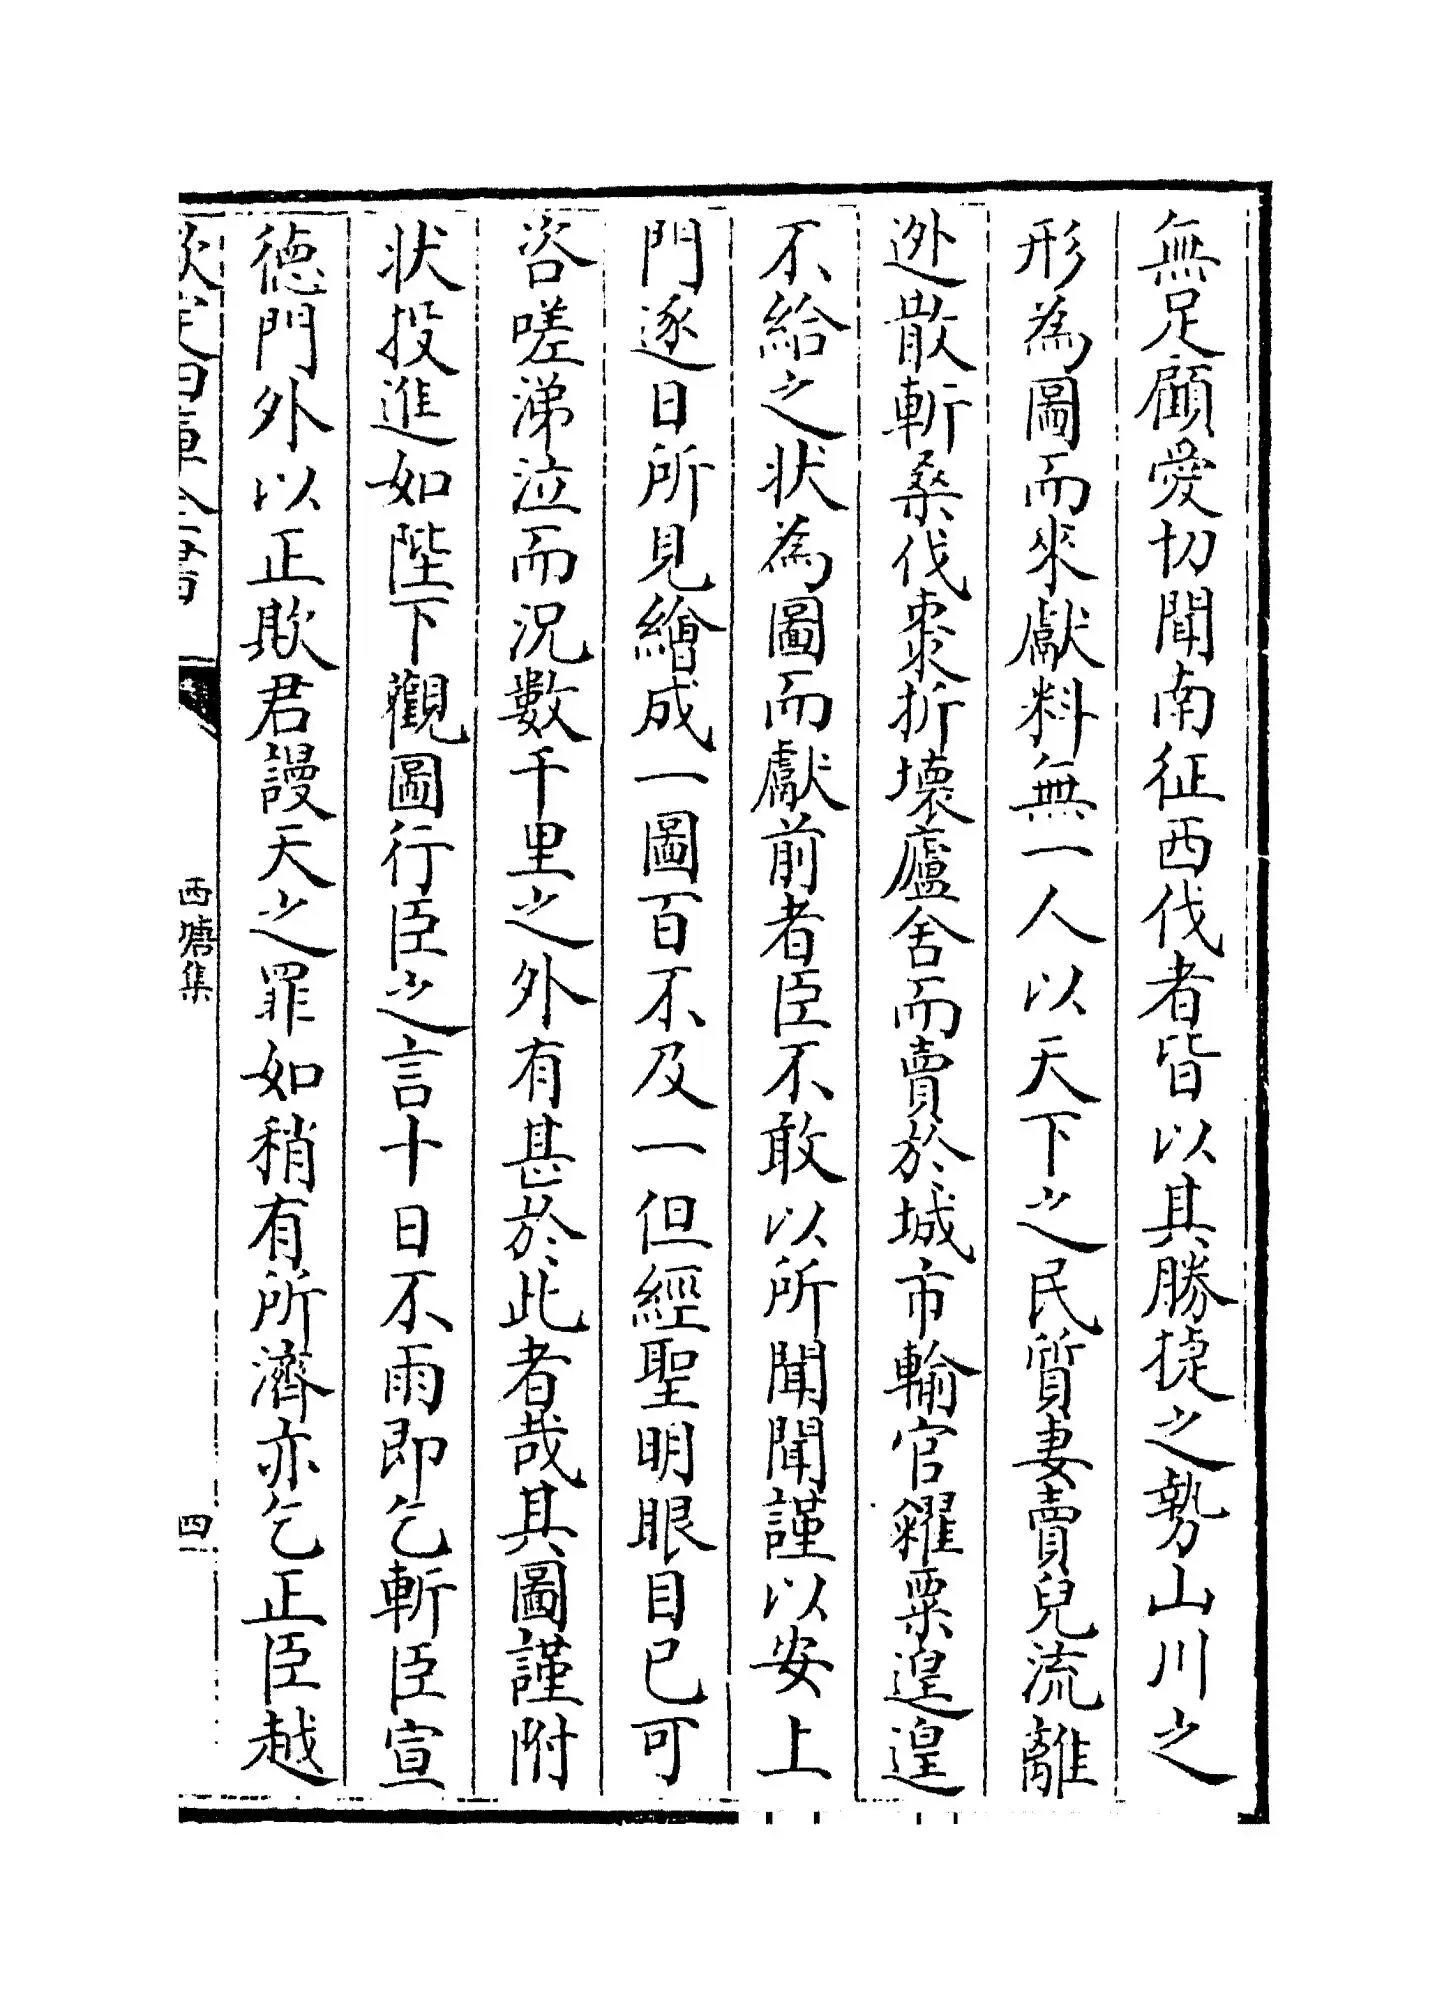 無足顧愛切聞南征西伐者皆以其勝捷之勢山川之
形為圖而來獻料無一人以天下之民質妻賣兒流離
逬散斬桑伐棗折壞廬舍而賣於城市輸官糴粟遑遑
不給之状為圖而獻前者臣不敢以所聞聞謹以安上
門逐日所見繪成一圖百不及一但經聖明眼目已可
咨嗟涕泣而況數千里之外有甚於此者哉其圖謹附
状投進如陛下觀圖行臣之言十日不雨即乞斬臣宣
徳門外以正欺君謾天之罪如稍有所濟亦乞正臣越
欽定四庫全書
西塘集
四